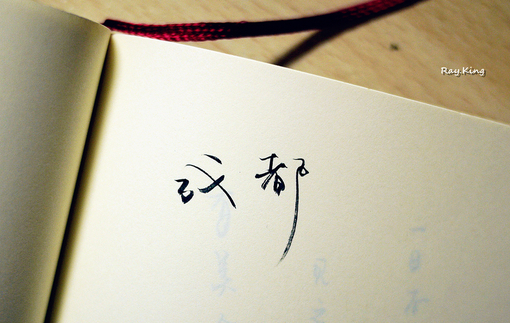 Ray.King
成都